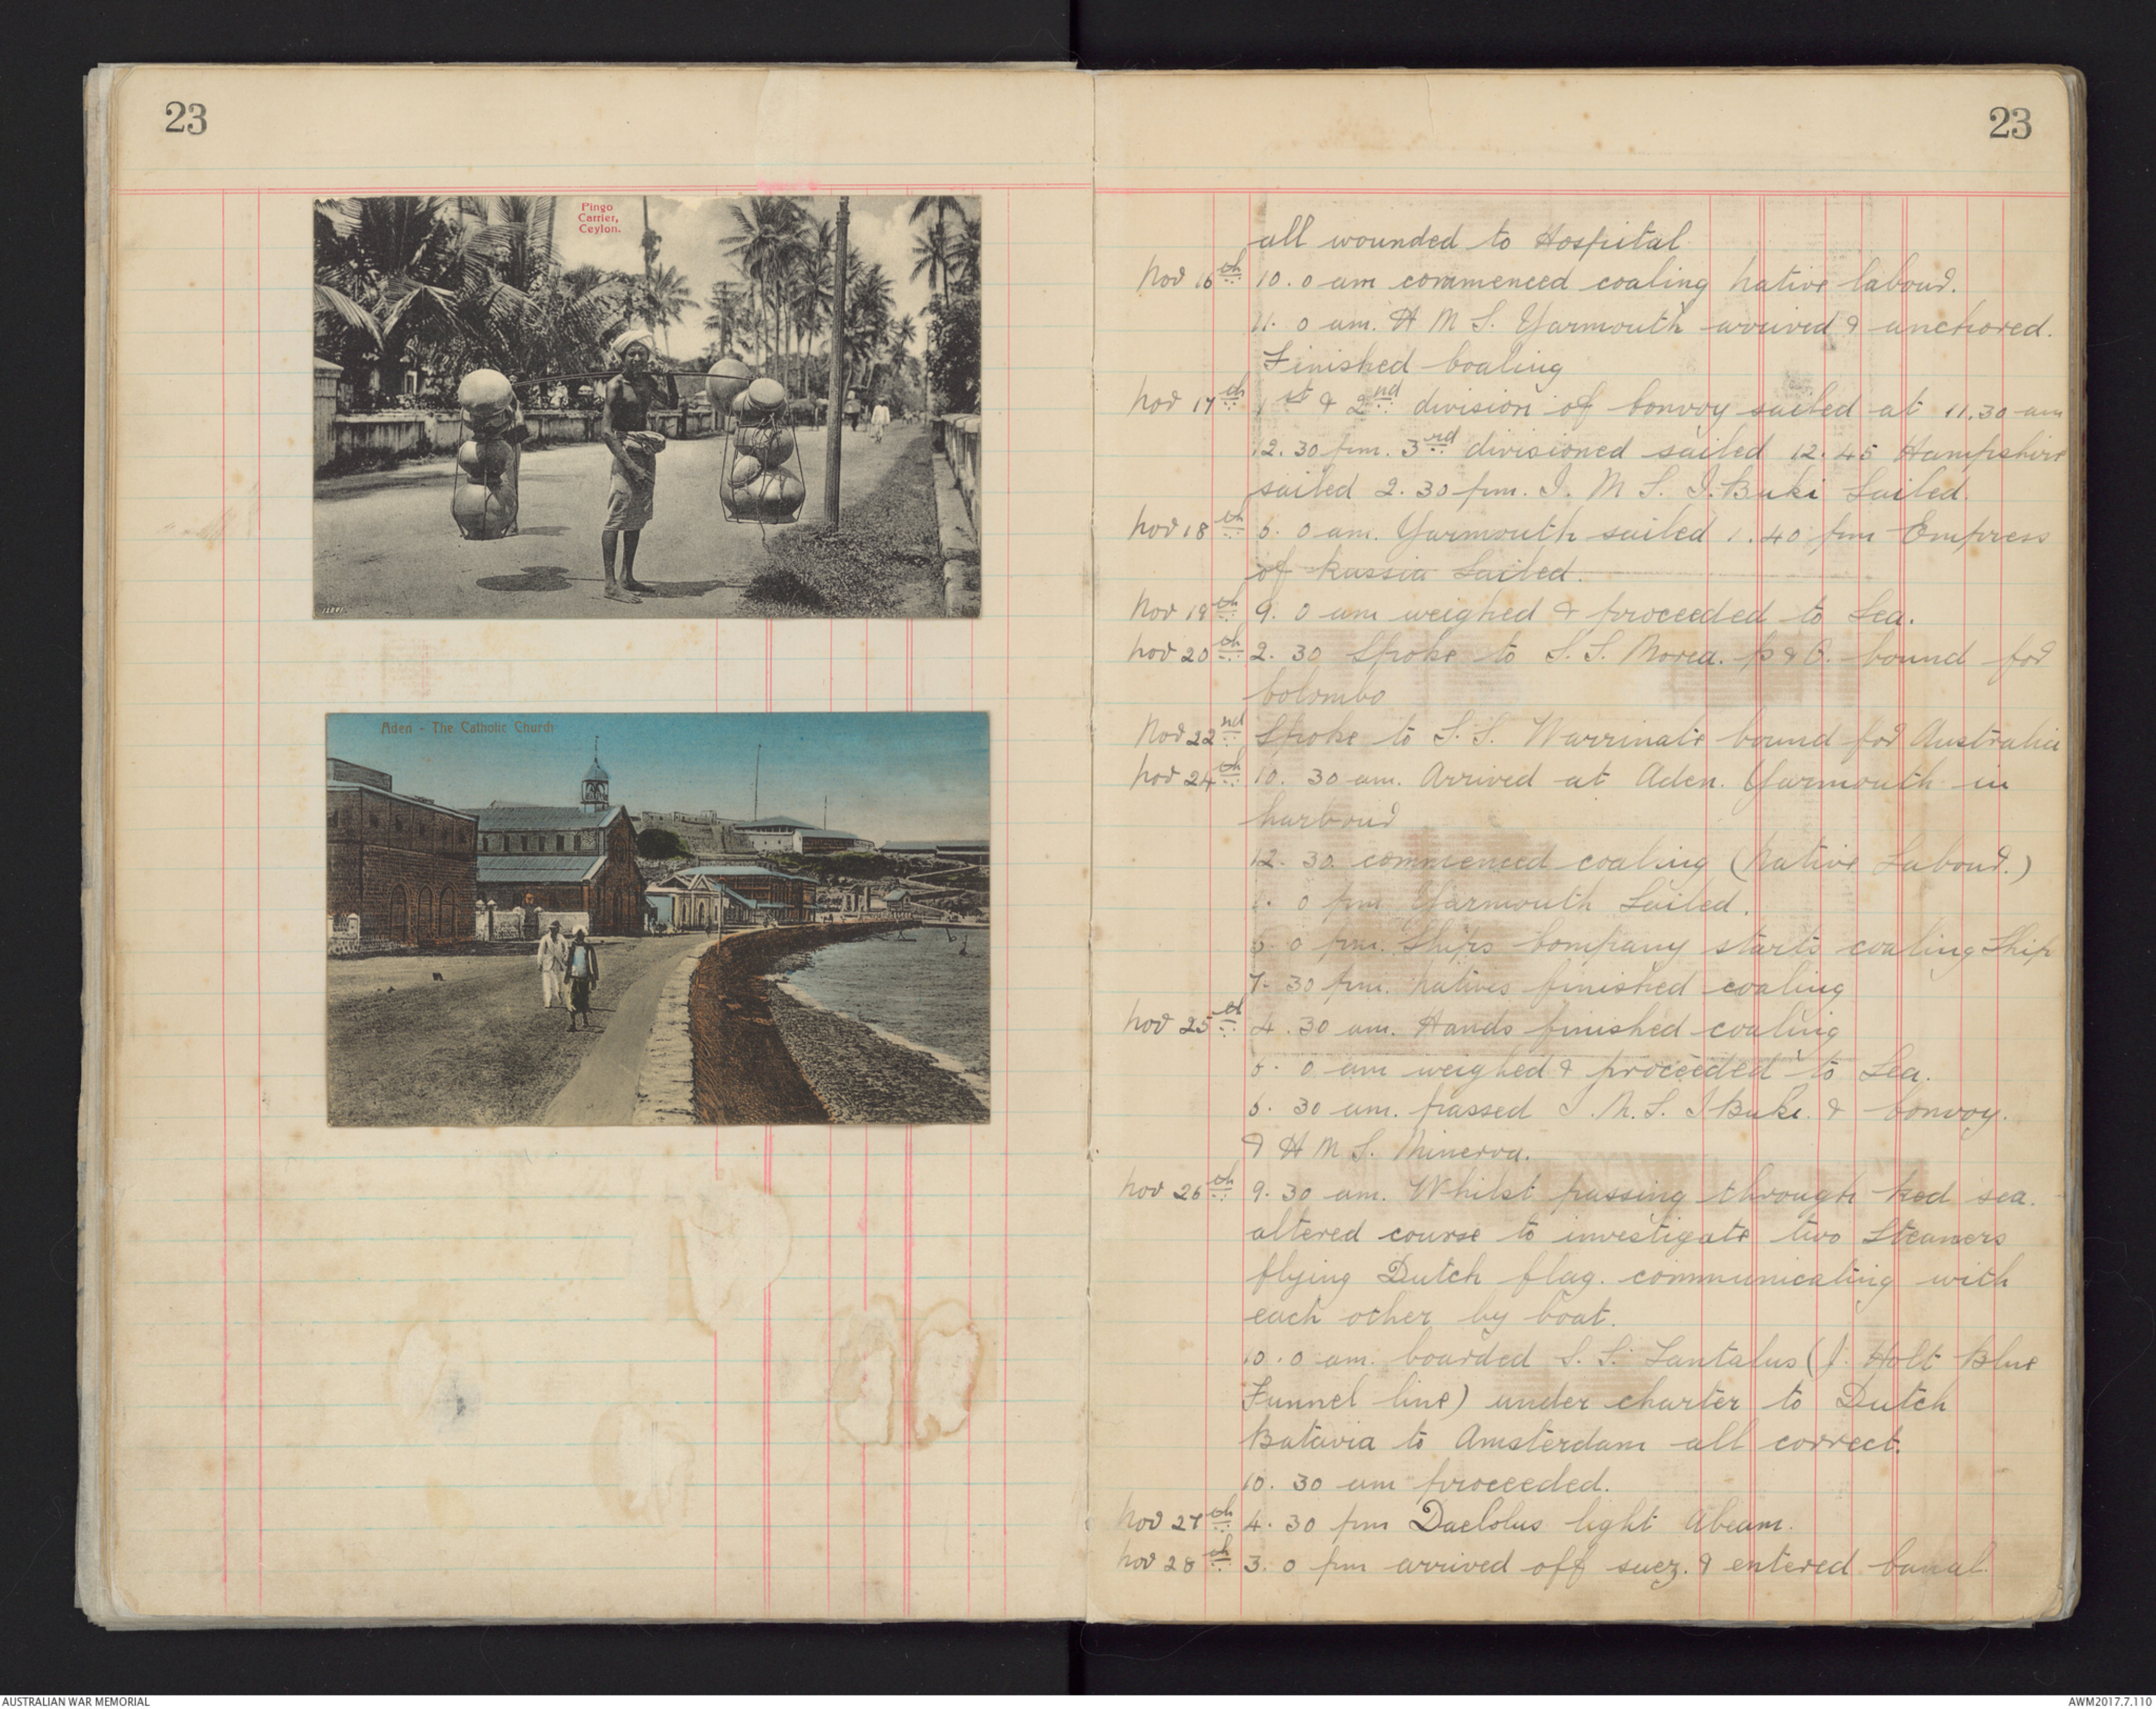 23
Pingo
Carrier,
Ceylon.
Aden - The Catholic Church
23
all wounded to Hospital
Nov 16th 10.0 am commenced coaling native labour.
11.0 am. H M S. Yarmouth arrived & anchored.
Finished Coaling
Nov 17th 1st & 2nd division of Convoy sailed at 11.30 am
12.30 pm. 3rd divisioned sailed 12.45 Hampshire
sailed 2.30 pm. I. M S. I. Buki Sailed.
Nov 18th 6.0 am. Yarmouth sailed 1.40 pm Empress
of Russia Sailed.
Nov 19th 9.0 am weighed & proceeded to Sea.
Nov 20th 2.30 Spoke to S.S. Morea. P & O. bound for
Colombo
Nov 22nd Spoke to S.S. bound for Australia
Nov 24th 10.30 am. Arrived at Aden. Yarmouth in
harbour
12.30 commenced coaling (Native Labour.)
0 pm Yarmouth Sailed.
0 pm. Ships Company starts coaling Ship
7.30 pm. natives finished coaling
Nov 25th 4.30 am. Hands finished coaling
0 am weighed & proceeded to Sea.
6.30 am. passed I.M.S. I Buki. & Convoy.
& H M S. Minerva.
Nov 26th 9.30 am. Whilst passing through Red sea.
altered course to investigate two Steamers
flying Dutch flag. communicating with
each other by boat.
10.0 am. boarded S.S. Tantalus (J. Holt Blue
Funnel line) under charter to Dutch
Batavia to Amsterdam all correct.
10.30 am proceeded.
Nov 27th 4.30 pm Daelolus light Abeam.
Nov 28th 3.0 pm arrived off suez. & entered Canal.
AUSTRALIAN WAR MEMORIAL
AWM2017.7.110